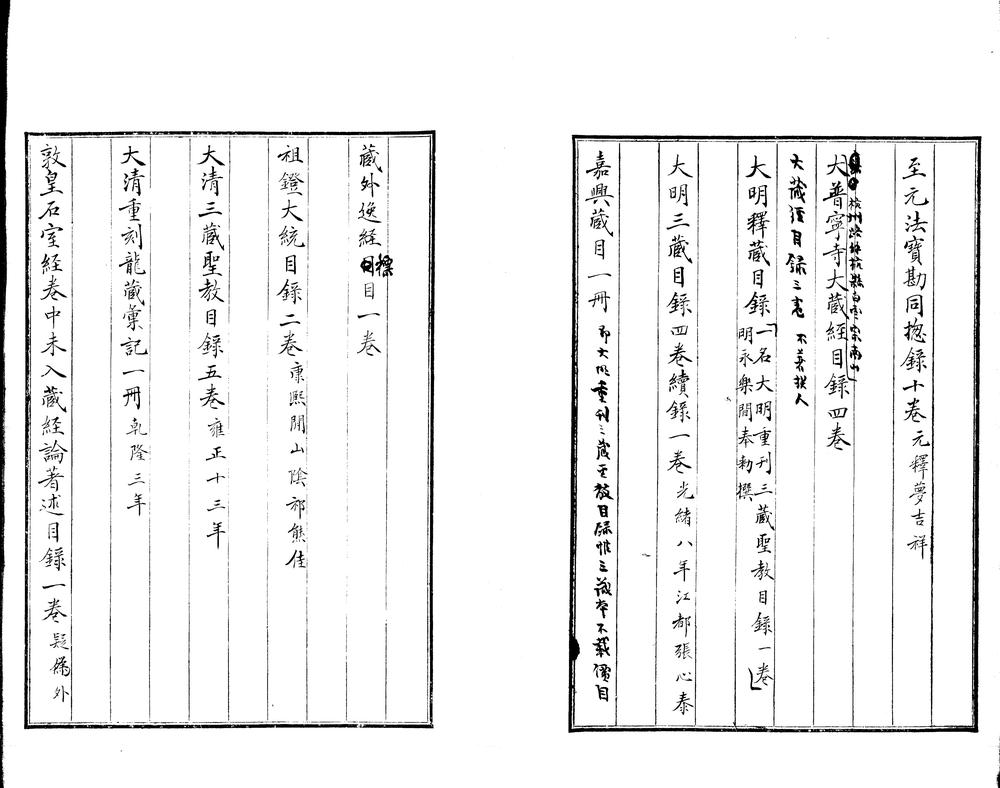 至元法寶勘同㧾錄十卷元釋夢吉祥
杭州餘杭縣白雲宗南山
大普寧寺大藏經目錄四卷
大藏經目錄三卷 不著撰人
大明釋藏目錄「一名大明重刊三藏聖教目錄一卷」
明永樂間奉勅撰
大明三藏目錄四卷續錄一卷光緒八年江都張心泰
嘉興藏目一冊 即大明重刊三藏聖教目錄惟三藏本不載價目
藏外逸經標目一卷
祖鐙大統目錄二卷康熙間山陰祁熊佳
大清三藏聖教目錄五卷雍正十三年
大清重刻龍藏彙記一冊乾隆三年
敦皇石室經卷中未入藏經論著述目錄一卷疑偽外